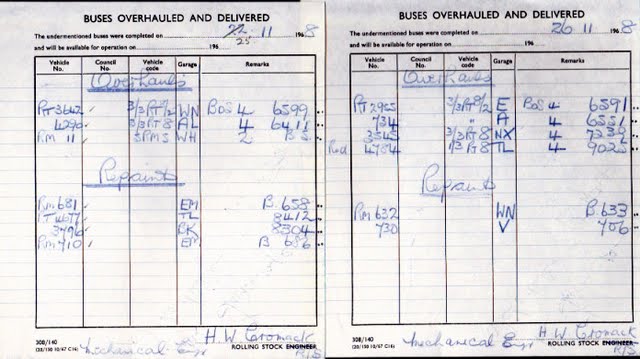 BUSES OVERHAULED AND DELIVERED
The undermentioned buses were completed on 22 11 1968
25
and will be available for operation on 196
Vehicle No. Council No. Vehicle code Garage Remarks
Overhauls
RT 3642 3/3RT8/2 WN BoS 4 6599
4296 3/3RT8 AL 4 6411
RM 11 5RM5 WH 2 BS
Repaints
RM 681 EM B. 658
RT 4677 TL 8412
3796 BK 8304
RM 710 EM B 686
308/140
H. W. Cromack
ROLLING STOCK ENGINEER
Mechanical Engr
BUSES OVERHAULED AND DELIVERED
The undermentioned buses were completed on 26 11 1968
and will be available for operation on 196
Vehicle No. Council No. Vehicle code Garage Remarks
Overhauls
RT 2965 3/3RT8/2 E BoS 4 6591
734 " A 4 6551
3545 3/3RT8 NX 4 7339
Red 4784 1/3RT8 TL 4 9025
Repaints
RM 632 WN B. 633
730 V 706
308/140
H. W. Cromack
ROLLING STOCK ENGINEER
Mechanical Engr